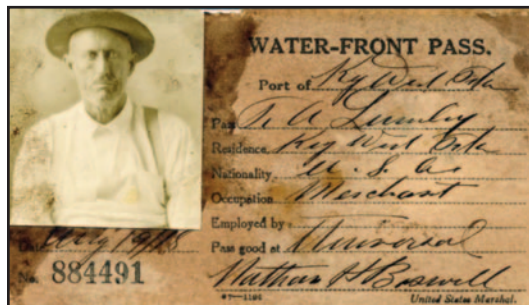 WATER-FRONT PASS.
Port of Key West Fla
Pass T. A. Lumley
Residence, Key West Fla
Nationality U. S. A.
Occupation Merchant
Employed by
Pass good at Universal
Date
No. 884491
Nathan H Boswell
47—1101 United States Marshal.